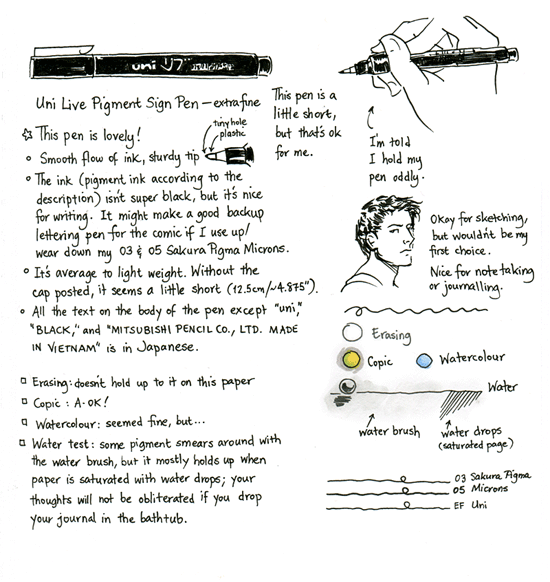 uni
Uni Live Pigment Sign Pen — extrafine
This pen is lovely!
tiny hole
plastic
Smooth flow of ink, sturdy tip
The ink (pigment ink according to the
description) isn't super black, but it's nice
for writing. It might make a good backup
lettering pen for the comic if I use up/
wear down my 03 & 05 Sakura Pigma Microns.
It's average to light weight. Without the
cap posted, it seems a little short (12.5cm/~4.875").
All the text on the body of the pen except "uni,"
"BLACK," and "MITSUBISHI PENCIL CO., LTD. MADE
IN VIETNAM" is in Japanese.
Erasing: doesn't hold up to it on this paper
Copic : A-OK!
Watercolour: seemed fine, but...
Water test: some pigment smears around with
the water brush, but it mostly holds up when
paper is saturated with water drops; your
thoughts will not be obliterated if you drop
your journal in the bathtub.
This pen is a
little short,
but that's ok
for me.
I'm told
I hold my
pen oddly.
Okay for sketching,
but wouldn't be my
first choice.
Nice for note taking
or journalling.
Erasing
Copic
Watercolour
Water
water brush
water drops
(saturated page)
03 Sakura Pigma
05 Microns
EF Uni